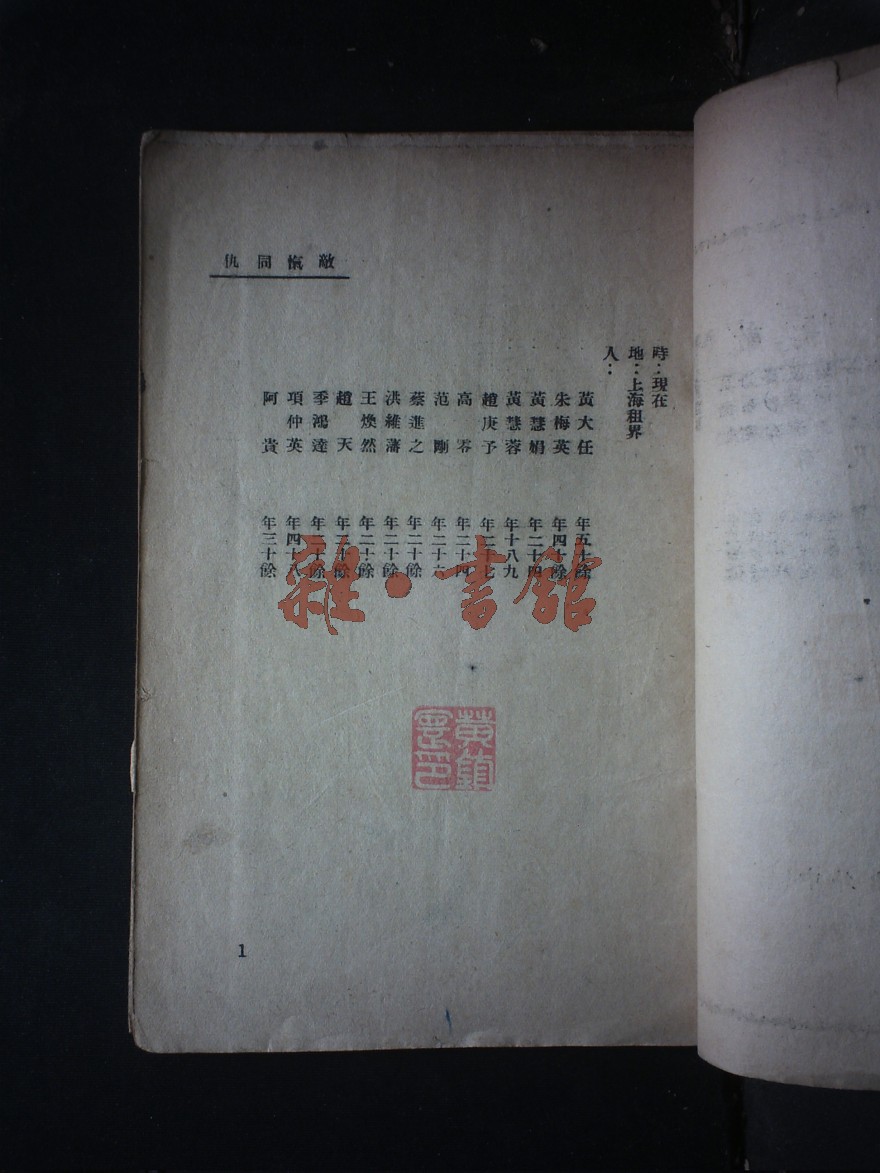 敵愾同仇
時：現在
地：上海租界
人：
黃大任 年五十餘
朱梅英 年四十餘
黃慧娟 年二十四
黃慧蓉 年十八九
趙庚予 年二十七
高零 年二十四
范剛 年二十六
蔡進之 年二十餘
洪維藩 年二十餘
王煥然 年二十餘
趙天 年二十餘
季鴻達 年二十餘
項仲英 年四十八
阿貴 年三十餘
雜·書館
1